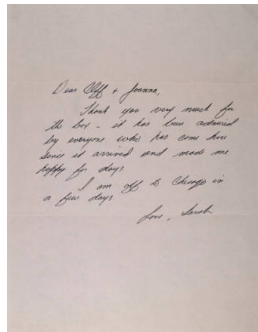 Dear Cliff + Joanna,
Thank you very much for
the box - it has been admired
by everyone who has come here
since it arrived and made me
happy for days.
I am off to Chicago in
a few days.
Love, Sarah